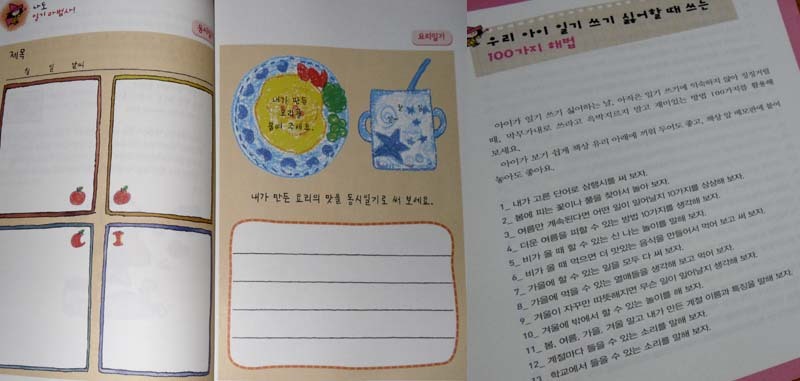 나도
일기 마법사!
제목
월 일 날씨
요리일기
내가 만든
요리를
불여 주세요.
내가 만든 요리의 맛을 동시일기로 써 보세요.
우리 아이 일기 쓰기 싫어할 때 쓰는
100가지 해법
아이가 일기 쓰기 싫어하는 날, 아직은 일기 쓰기에 익숙하지 않아 징징거릴
때, 막무가내로 쓰라고 윽박지르지 말고 재미있는 방법 100가지를 활용해
보세요.
아이가 보기 쉽게 책상 유리 아래에 끼워 두어도 좋고, 책상 앞 메모판에 붙여
놓아도 좋아요.
1_ 내가 고른 단어로 삼행시를 써 보자.
2_ 봄에 피는 꽃이나 풀을 찾아서 놀아 보자.
3_ 여름만 계속된다면 어떤 일이 일어날지 10가지를 상상해 보자.
4_ 더운 여름을 피할 수 있는 방법 10가지를 생각해 보자.
5_ 비가 올 때 할 수 있는 신 나는 놀이를 말해 보자.
6_ 비가 올 때 먹으면 더 맛있는 음식을 만들어서 먹어 보고 써 보자.
7_ 가을에 할 수 있는 일을 모두 다 써 보자.
8_ 가을에 먹을 수 있는 열매들을 생각해 보고 먹어 보자.
9_ 겨울이 자꾸만 따뜻해지면 무슨 일이 일어날지 생각해 보자.
10_ 겨울에 밖에서 할 수 있는 놀이를 해 보자.
11_ 봄, 여름, 가을, 겨울 말고 내가 만든 계절 이름과 특징을 말해 보자.
12_ 계절마다 들을 수 있는 소리를 말해 보자.
13_ 학교에서 들을 수 있는 소리를 말해 보자.